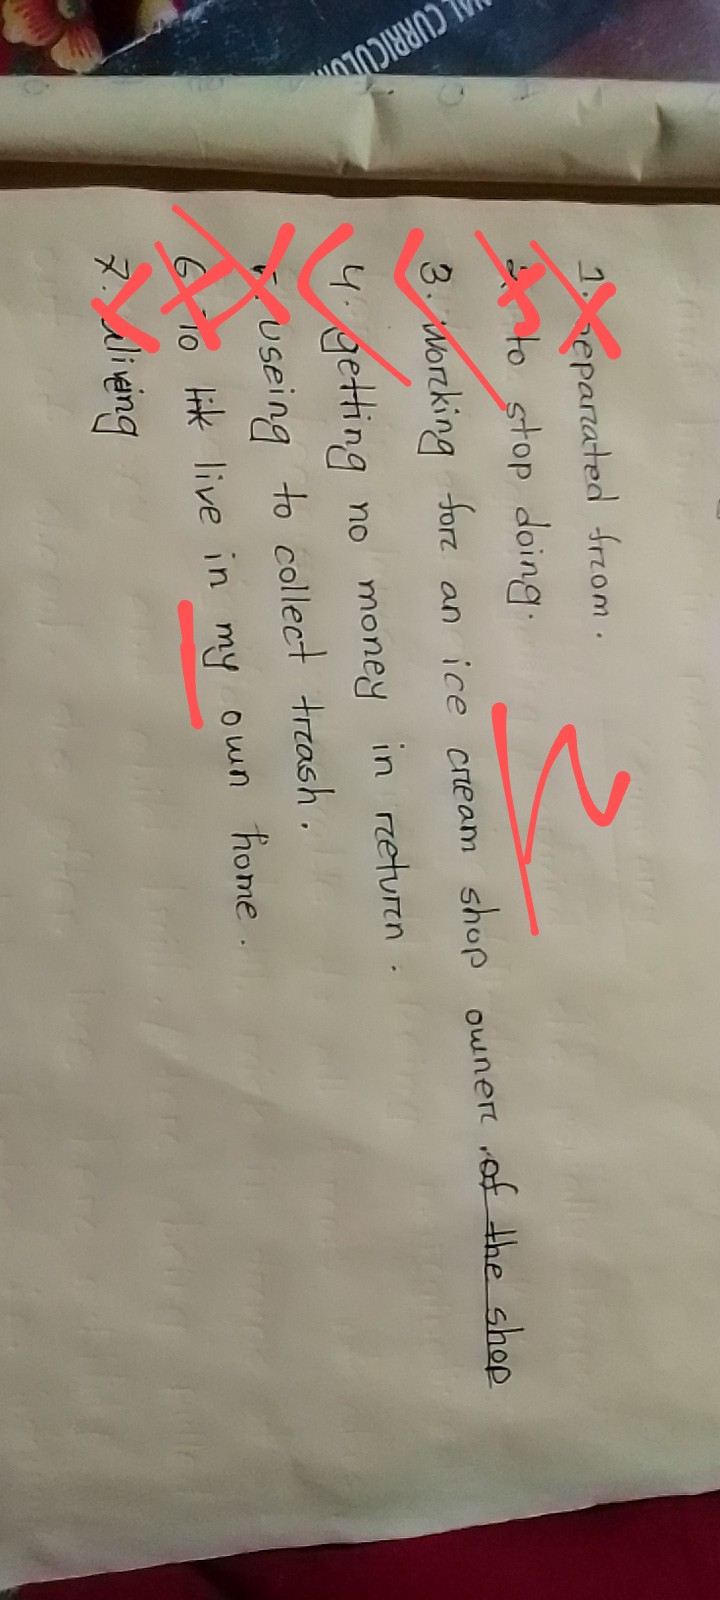 NAL CURRICULUM
1. Separated from.
2. to stop doing.
3. Working for an ice cream shop owner. of the shop
4. getting no money in return.
5. useing to collect trash.
6. To live in my own home.
7. living